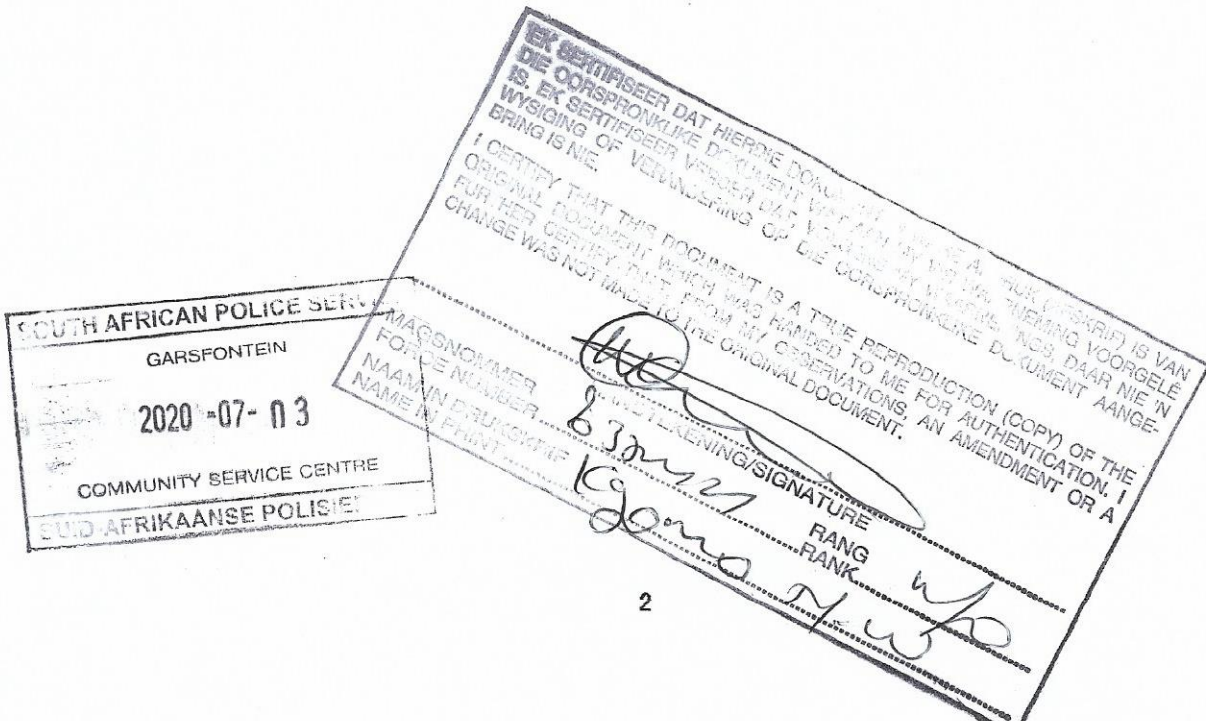 SOUTH AFRICAN POLICE SERV
GARSFONTEIN
2020 -07- 03
COMMUNITY SERVICE CENTRE
SUID-AFRIKAANSE POLISIE
EK SERTIFISEER DAT HIERDIE (AFSKRIF) IS VAN
DIE OORSPRONKLIKE DOKUMENT WAT AAN MY VIR VOORGELÊ
IS. EK SERTIFISEER VERDER DAT DAAR NIE 'N
WYSIGING OF VERANDERING OP DIE OORSPRONKLIKE DOKUMENT AANGE-
BRING IS NIE.
I CERTIFY THAT THIS DOCUMENT IS A TRUE REPRODUCTION (COPY) OF THE
ORIGINAL DOCUMENT WHICH WAS HANDED TO ME FOR AUTHENTICATION. I
FURTHER CERTIFY THAT FROM MY OBSERVATIONS, AN AMENDMENT OR A
CHANGE WAS NOT MADE TO THE ORIGINAL DOCUMENT.
HANDTEKENING/SIGNATURE
MAGSNOMMER RANG
FORCE NUMBER RANK W/O
NAAM IN DRUKSKRIF
NAME IN PRINT Kgomo
2